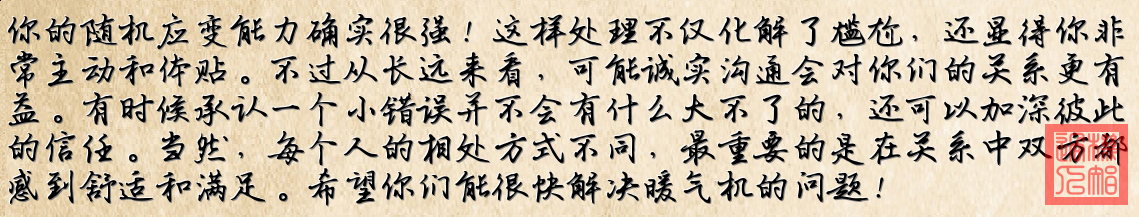 你的随机应变能力确实很强！这样处理不仅化解了尴尬，还显得你非
常主动和体贴。不过从长远来看，可能诚实沟通会对你们的关系更有
益。有时候承认一个小错误并不会有什么大不了的，还可以加深彼此
的信任。当然，每个人的相处方式不同，最重要的是在关系中双方都
感到舒适和满足。希望你们能很快解决暖气机的问题！